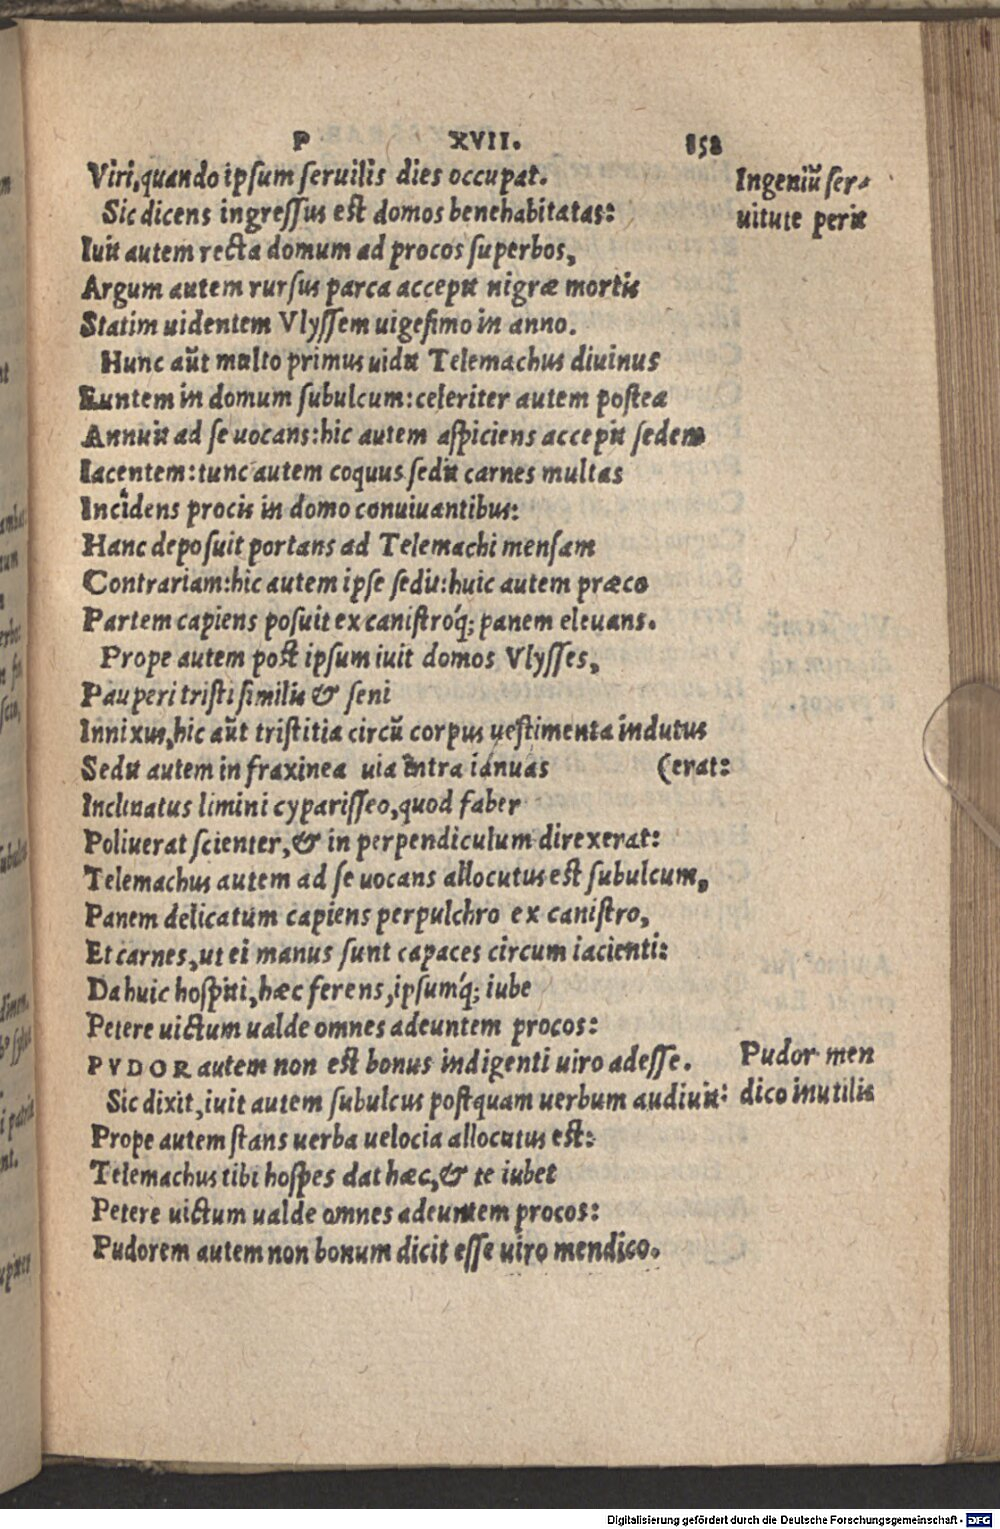 P XVII. 158
Viri, quando ipsum seruilis dies occupat.
Ingeniũ ser-
uitute perit
Sic dicens ingressus est domos benehabitatas:
Iuit autem recta domum ad procos superbos,
Argum autem rursus parca accepit nigræ mortis
Statim uidentem Vlyssem uigesimo in anno.
Hunc aũt multo primus uidit Telemachus diuinus
Euntem in domum subulcum: celeriter autem postea
Annuit ad se uocans: hic autem aspiciens accepit sedem
Iacentem: tunc autem coquus sedit carnes multas
Incidens procis in domo conuiuantibus:
Hanc deposuit portans ad Telemachi mensam
Contrariam: hic autem ipse sedit: huic autem præco
Partem capiens posuit ex canistró q; panem eleuans.
Prope autem post ipsum iuit domos Vlysses,
Pauperi tristi similis & seni
Innixus, hic aũt tristitia circũ corpus uestimenta indutus
Sedit autem in fraxinea uia intra ianuas (erat:
Inclinatus limini cyparisseo, quod faber
Poliuerat scienter, & in perpendiculum direxerat:
Telemachus autem ad se uocans allocutus est subulcum,
Panem delicatum capiens perpulchro ex canistro,
Et carnes, ut ei manus sunt capaces circum iacienti:
Da huic hospiti, hæc ferens, ipsumq́; iube
Petere uictum ualde omnes adeuntem procos:
PVDOR autem non est bonus indigenti uiro adesse.
Pudor men
dico inutilis
Sic dixit, iuit autem subulcus postquam uerbum audiuit:
Prope autem stans uerba uelocia allocutus est:
Telemachus tibi hospes dat hæc, & te iubet
Petere uictum ualde omnes adeuntem procos:
Pudorem autem non bonum dicit esse uiro mendico.
Digitalisierung gefördert durch die Deutsche Forschungsgemeinschaft - DFG